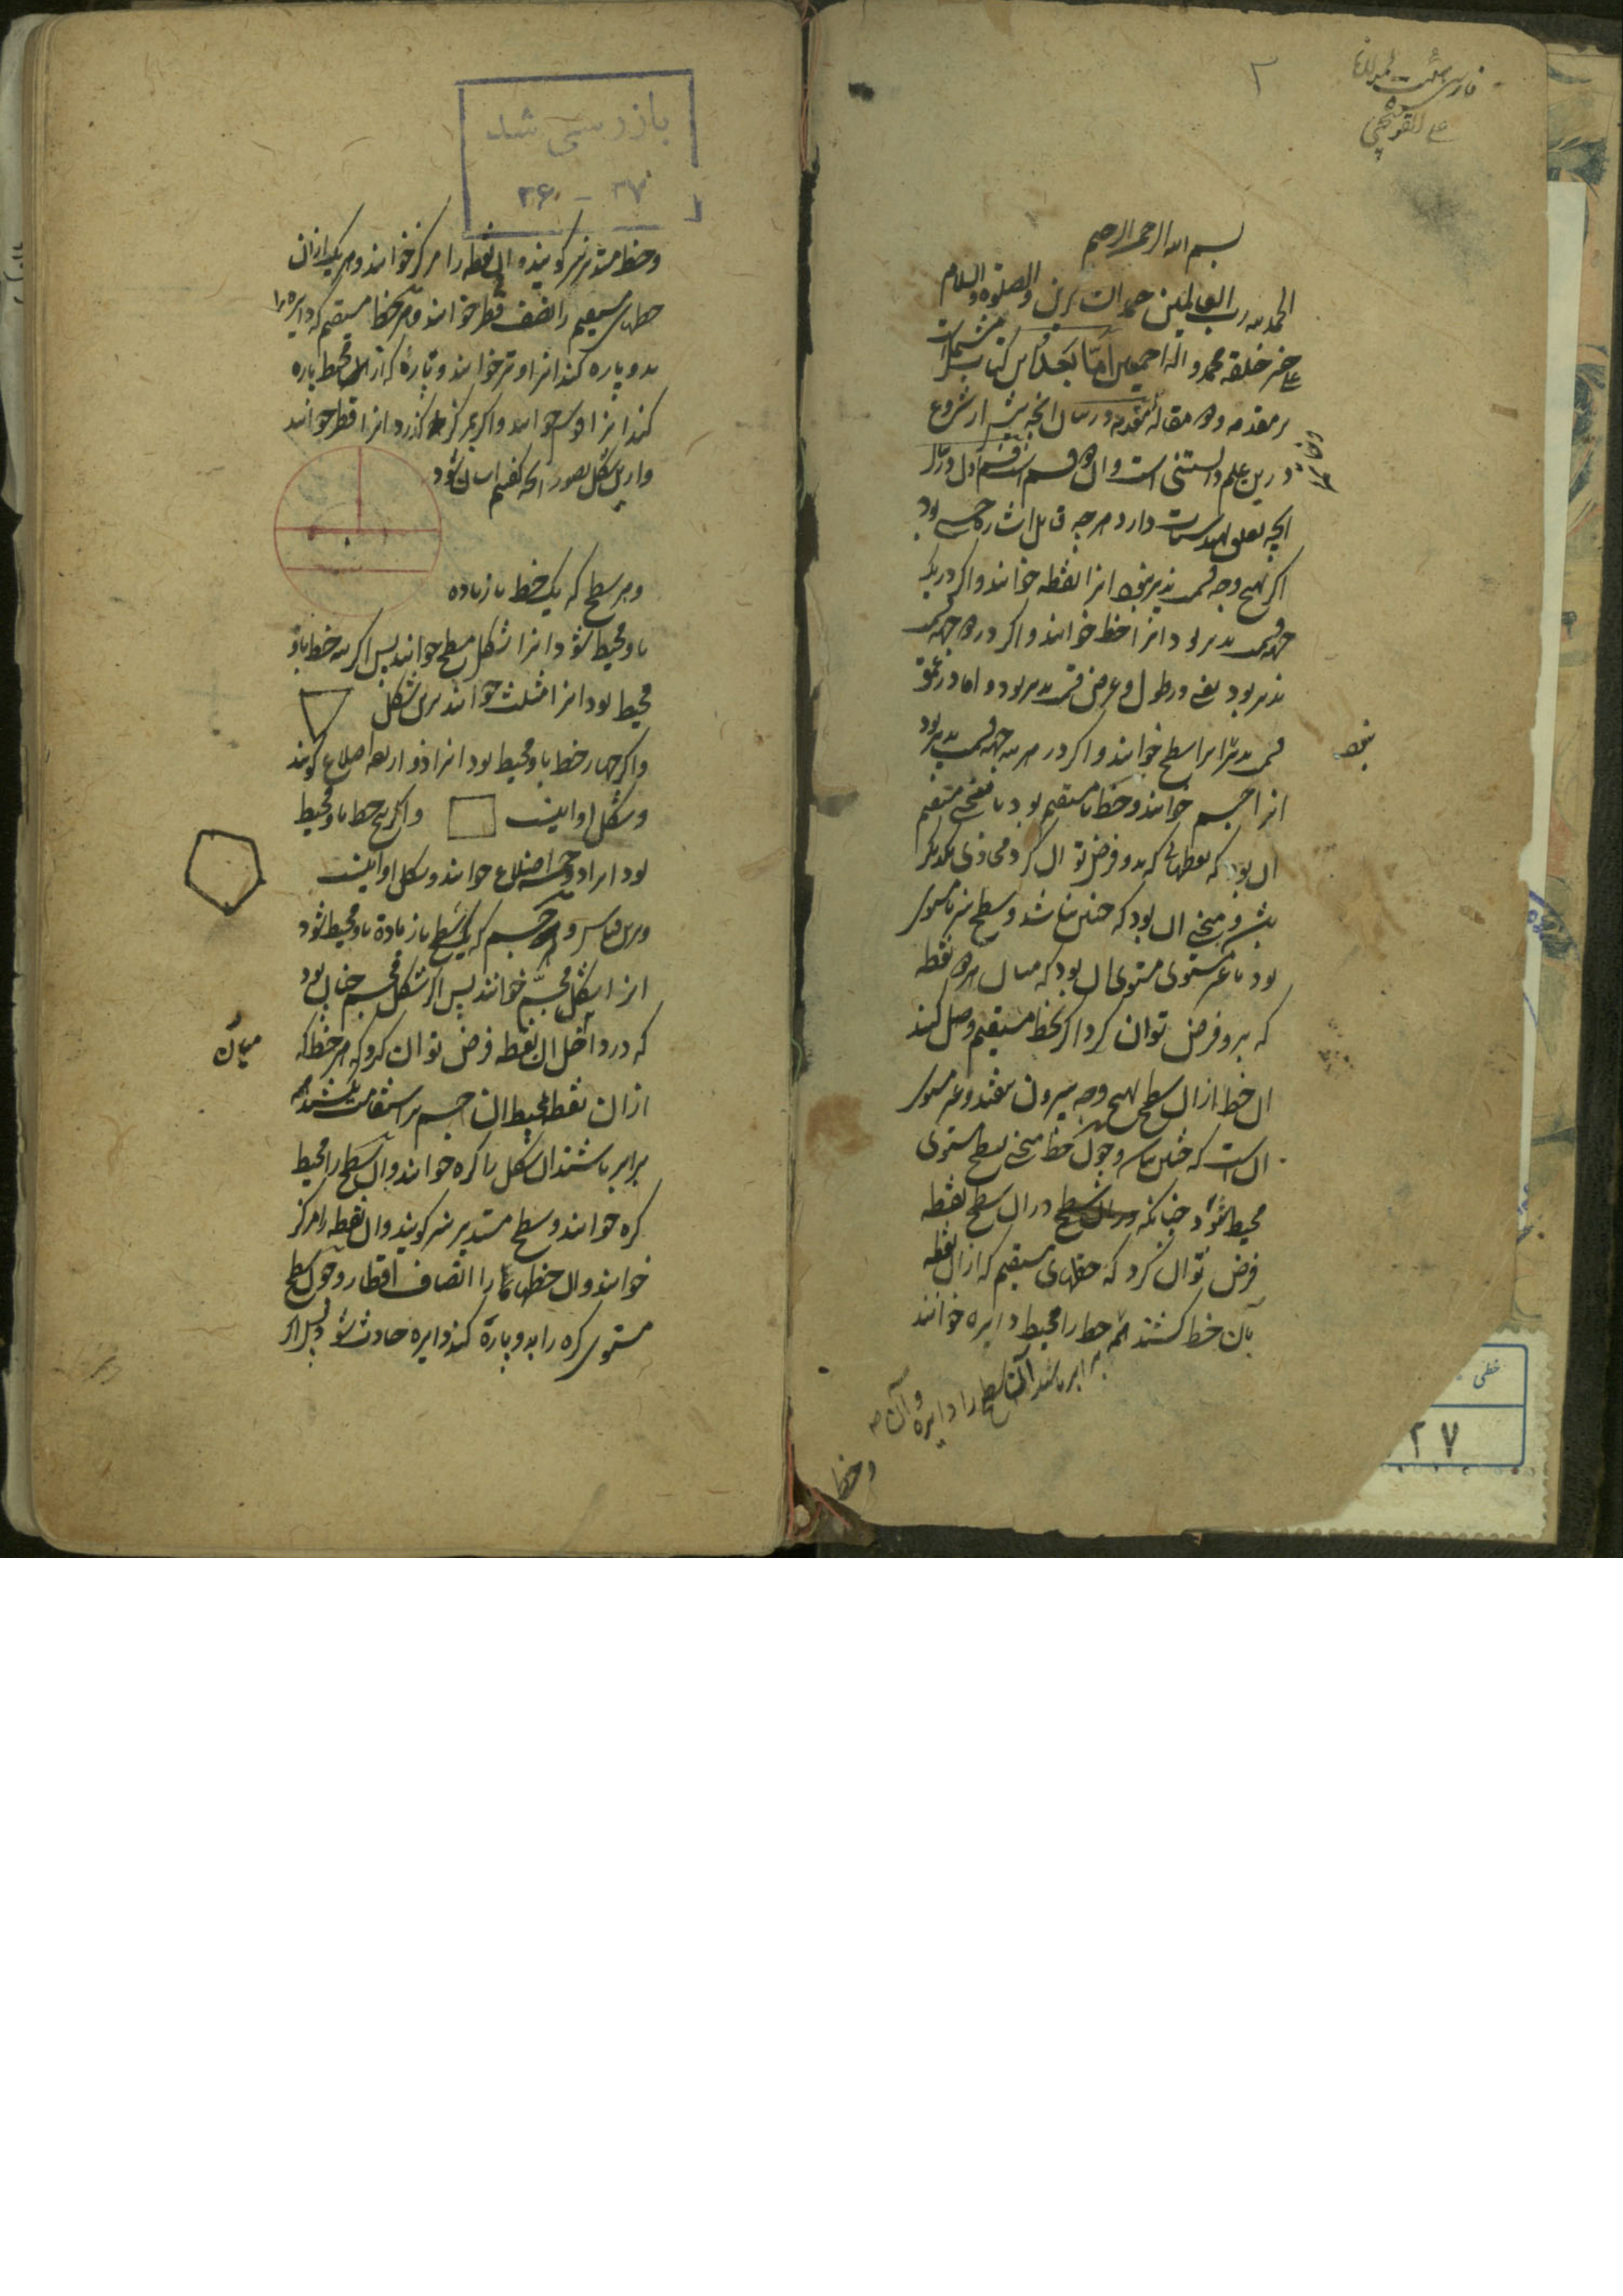 ۲
فارسی هیئت لمولانا
علی القوشچی
بسم الله الرحمن الرحیم
الحمد لله رب العالمین حمد الشاکرین والصلوة والسلام
علی خیر خلقه محمد و اله اجمعین اما بعد این کتاب مشتمل است
بر مقدمه و دو مقاله مقدمه در بیان انچه پیش از شروع
درین علم دانستنی است و آن دو قسم است قسم اول در بیان
انچه تعلق بهندسیات دارد هر چه قابل اشاره حسی بود
اگر بهیچ وجه قسمت پذیر نبود انرا نقطه خوانند و اگر در یک
جهة قسمت پذیر بود انرا خط خوانند و اگر در دو جهة قسمت
پذیر بود یعنی در طول و عرض قسمت پذیر بود و اما در عمق
قسمت پذیر نبود انرا سطح خوانند و اگر در هر سه جهة قسمت پذیر بود
انرا جسم خوانند و خط یا مستقیم بود یا منحنی مستقیم
آن بود که نقطهائی که بدو فرض توان کرد محاذی یکدیگر
باشند و منحنی آن بود که چنین نباشد و سطح نیز یا مستوی
بود یا غیر مستوی مستوی آن بود که میان هر دو نقطه
که برو فرض توان کرد اگر بخط مستقیم وصل کنند
آن خط از آن سطح بهیچ وجه بیرون نیفتد و غیر مستوی
آن است که چنین نباشد و چون خط منحنی بسطح مستوی
محیط شود چنانکه در آن سطح در آن سطح نقطه
فرض توان کرد که خطهای مستقیم که از آن نقطه
بآن خط کشند همه برابر باشند آن خط را محیط دایره خوانند
و آن سطح را دایره
و خط
بازرسی شد
۳۷ - ۳۶
و خط مستدیر نیز گویند و آن نقطه را مرکز خوانند و هر یک از آن
خطهای مستقیم را نصف قطر خوانند و هر خط مستقیم که دایره را
بدو پاره کند انرا وتر خوانند و پارۀ که از محیط پاره
کند انرا قوس خوانند و اگر بمرکز گذرد انرا قطر خوانند
و ازین شکل تصور انچه گفتیم آسان شود
و هر سطح که یک خط یا زیاده
باو محیط شود انرا شکل مسطح خوانند پس اگر سه خط باو
محیط بود انرا مثلث خوانند برین شکل
و اگر چهار خط باو محیط بود انرا ذو اربعه اضلاع گویند
و شکل او اینست و اگر پنج خط باو محیط
بود انرا ذو خمسه اضلاع خوانند و شکل او اینست
و برین قیاس و هر جسم که یک سطح یا زیاده باو محیط شود
انرا شکل مجسم خوانند پس اگر شکل مجسم چنان بود
که در داخل آن نقطه فرض توان کرد که هر خط که
میان
از آن نقطه بمحیط آن جسم بر استقامت کشند همه
برابر باشند آن شکل را کره خوانند و آن سطح را محیط
کره خوانند و سطح مستدیر نیز گویند و آن نقطه را مرکز
خوانند و آن خطها را انصاف اقطار و چون سطح
مستوی کره را بدو پاره کند دایره حادث شود پس اگر
خطی
۲۷